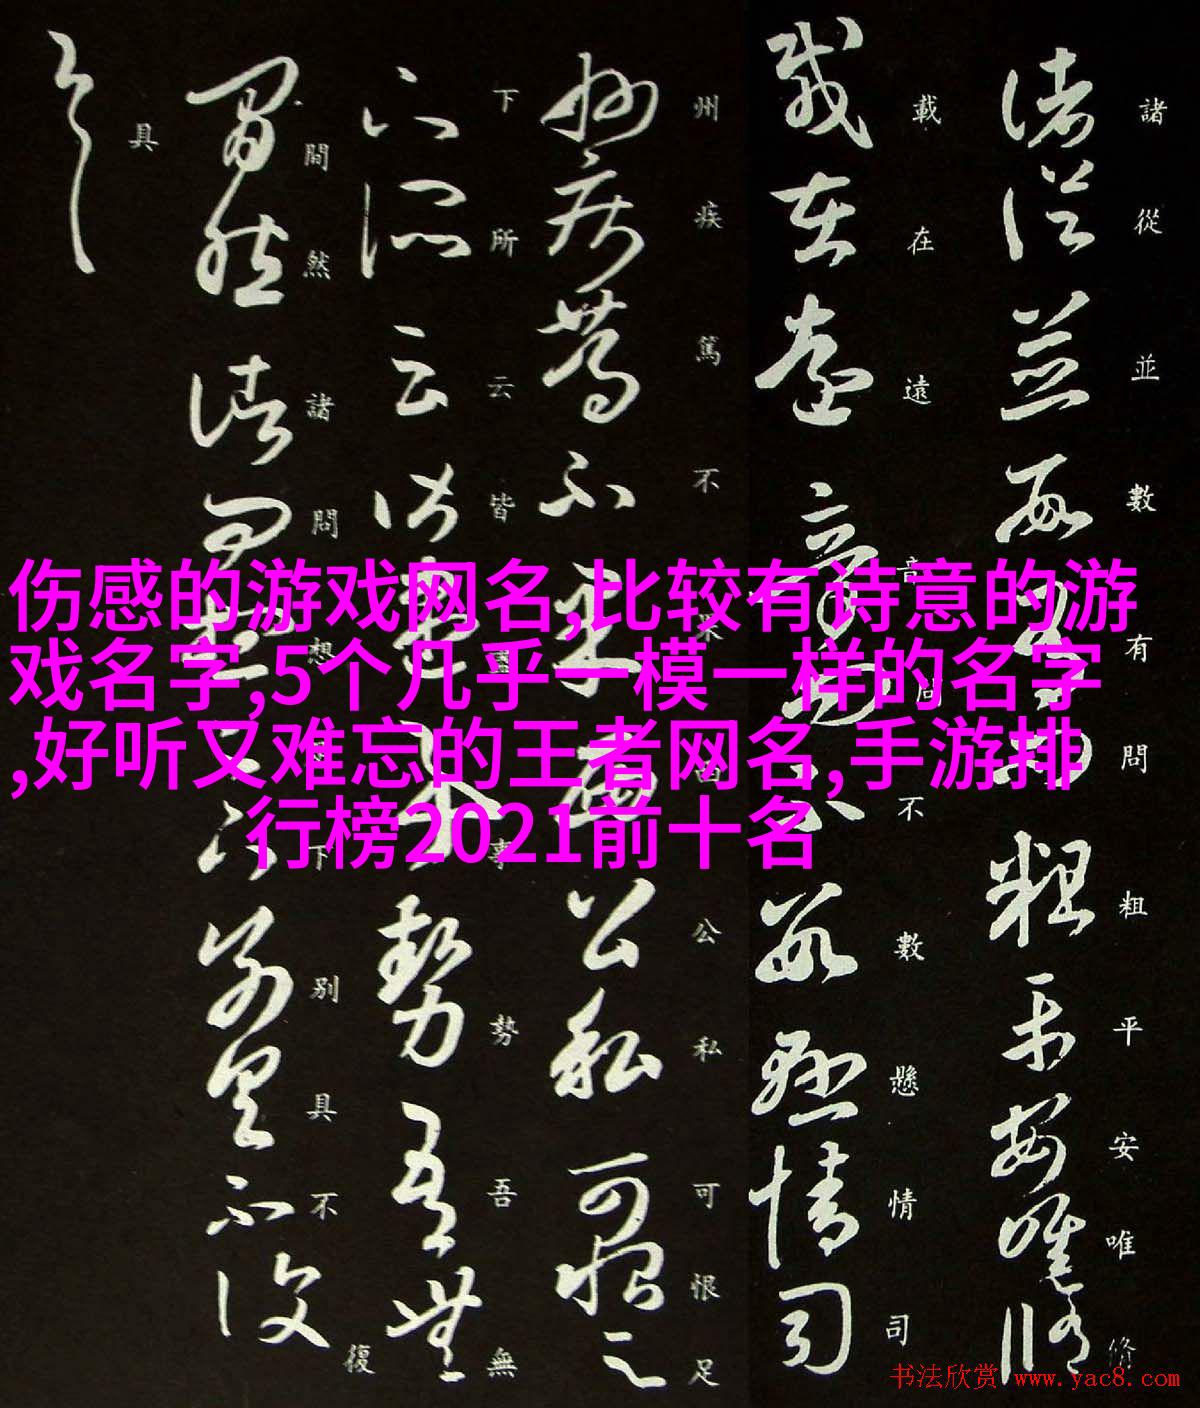 伤感的游戏网名,比较有诗意的游
戏名字,5个几乎一模一样的名字
,好听又难忘的王者网名,手游排
行榜2021前十名
諸從並數有問粗平安唯修
載在遠音問不數懸情司
州疾篤不果公私可恨足
下所云皆盡事勢吾無
間然諸問想下別具不復
具
书法欣赏 www.yac8.com